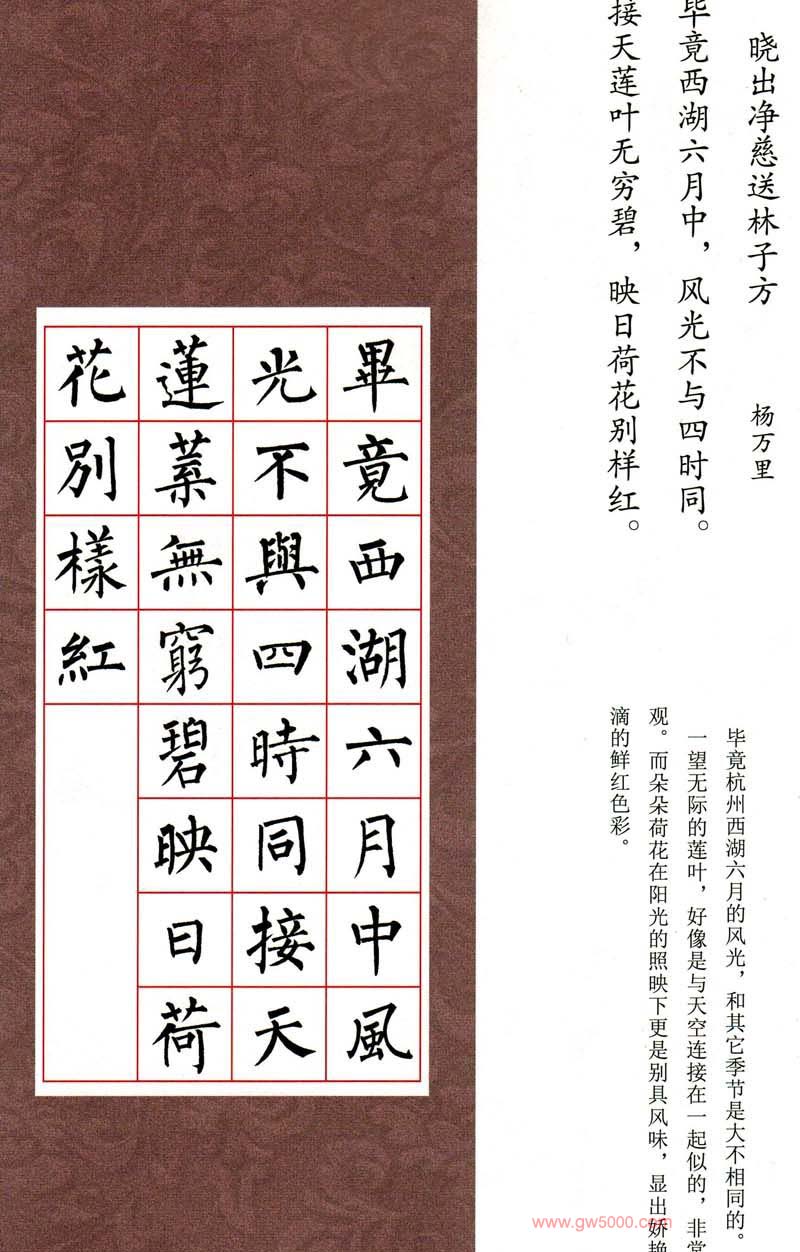 晓出净慈送林子方
杨万里
毕竟西湖六月中，风光不与四时同。
接天莲叶无穷碧，映日荷花别样红。
毕竟杭州西湖六月的风光，和其它季节是大不相同的。
一望无际的莲叶，好像是与天空连接在一起似的，非常
观。而朵朵荷花在阳光的照映下更是别具风味，显出娇艳
滴的鲜红色彩。
畢竟西湖六月中風
光不與四時同接天
蓮葉無窮碧映日荷
花別樣紅
www.gw5000.com